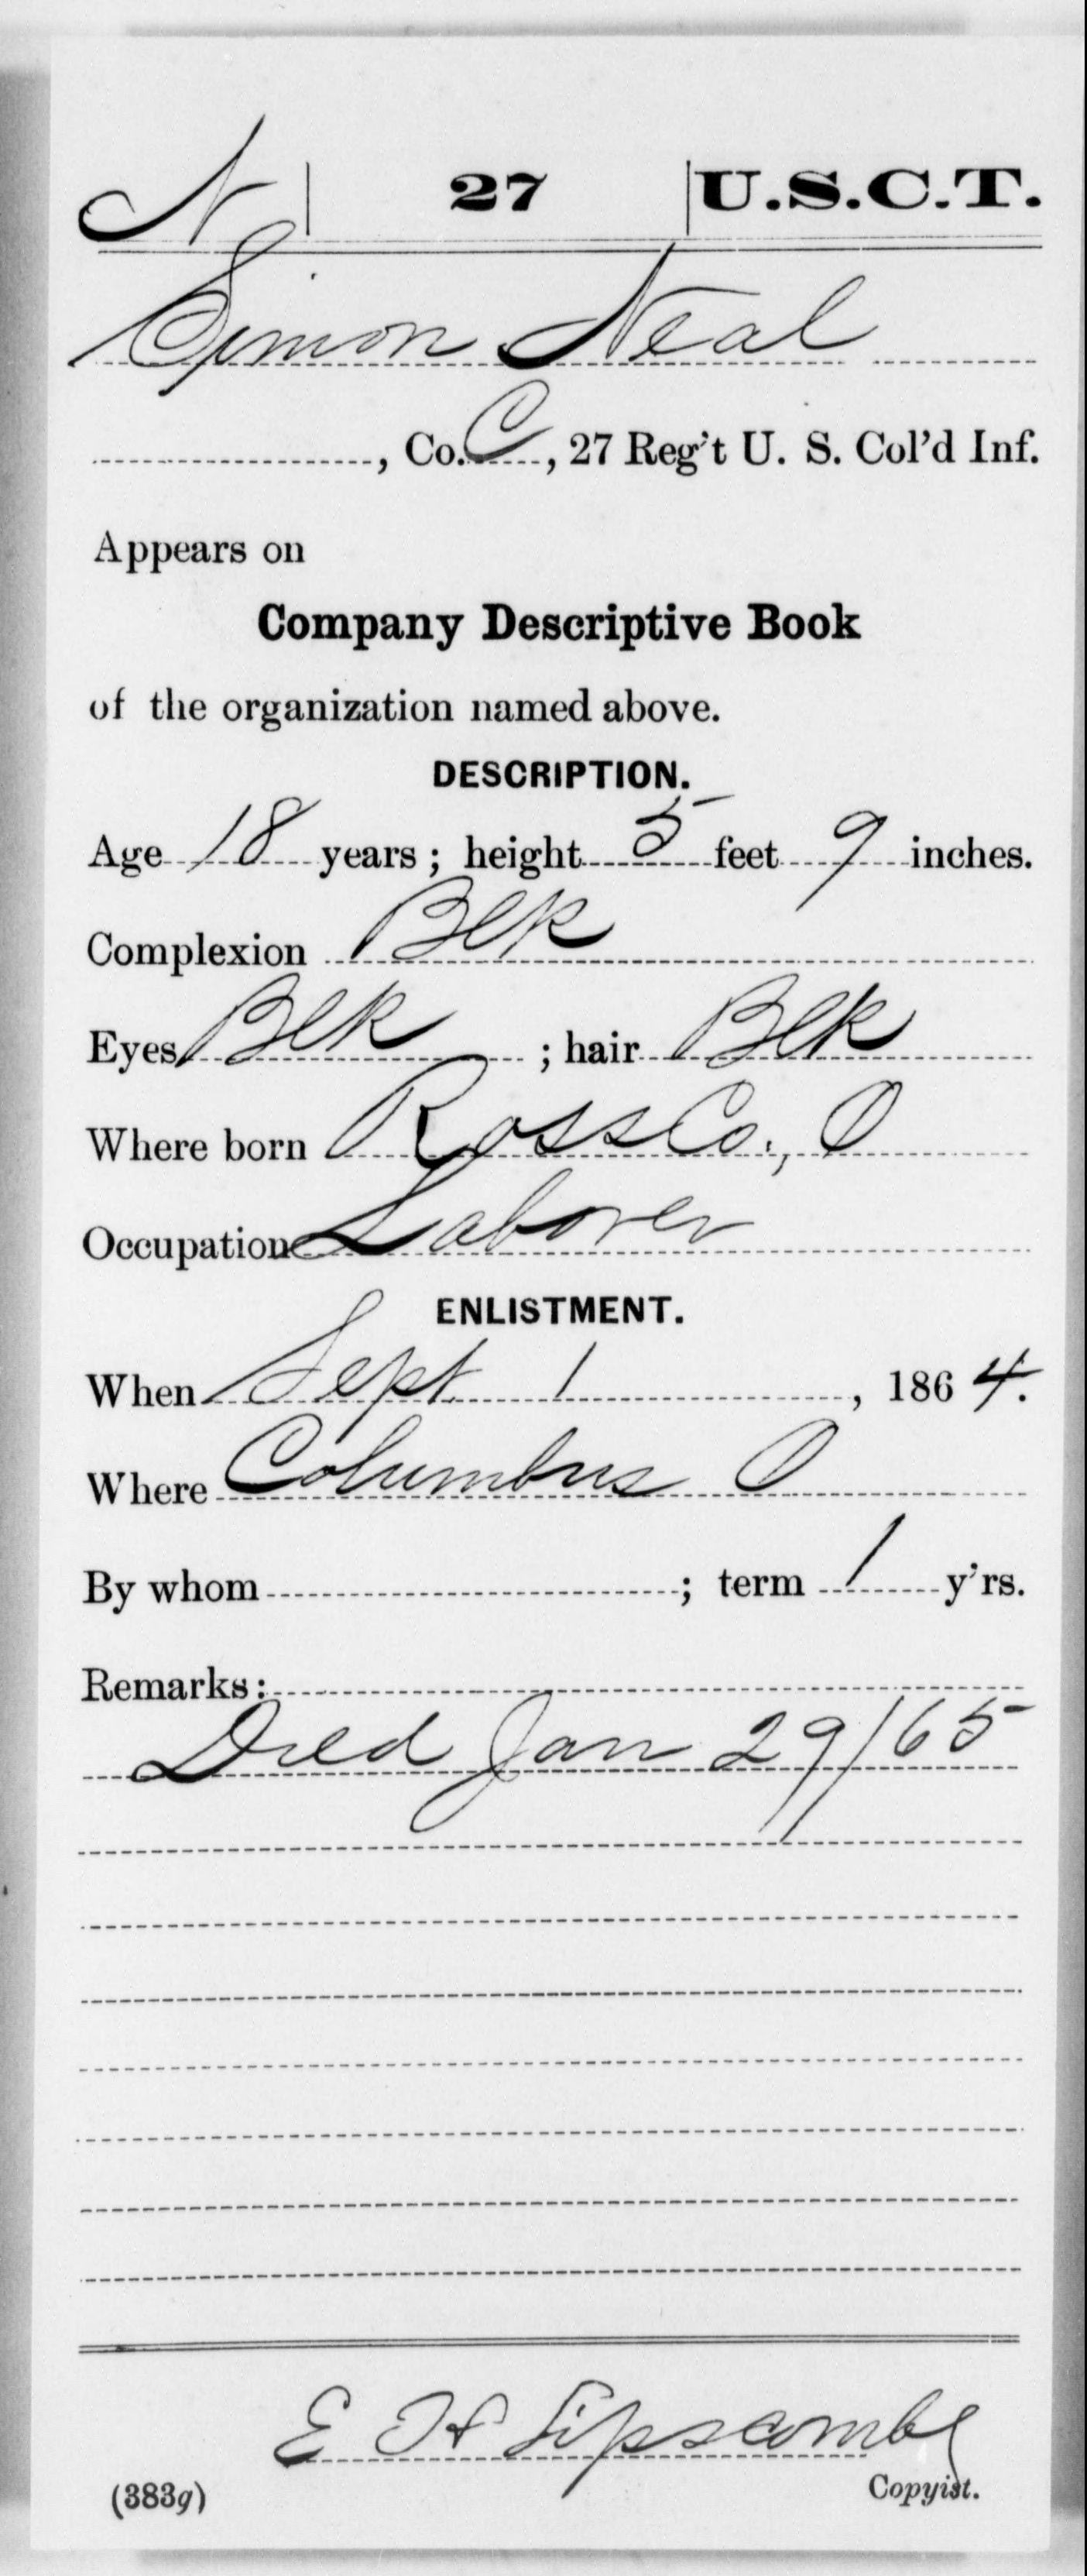 N | 27 | U.S.C.T.
Simon Neal
, Co. C, 27 Reg't U. S. Col'd Inf.
Appears on
Company Descriptive Book
of the organization named above.
DESCRIPTION.
Age 18 years; height 5 feet 9 inches.
Complexion Blk
Eyes Blk; hair Blk
Where born Ross Co., O
Occupation Laborer
ENLISTMENT.
When Sept 1, 1864.
Where Columbus O
By whom ; term 1 y'rs.
Remarks:
Died Jan 29/65
E H Lipscombe
(383g) Copyist.